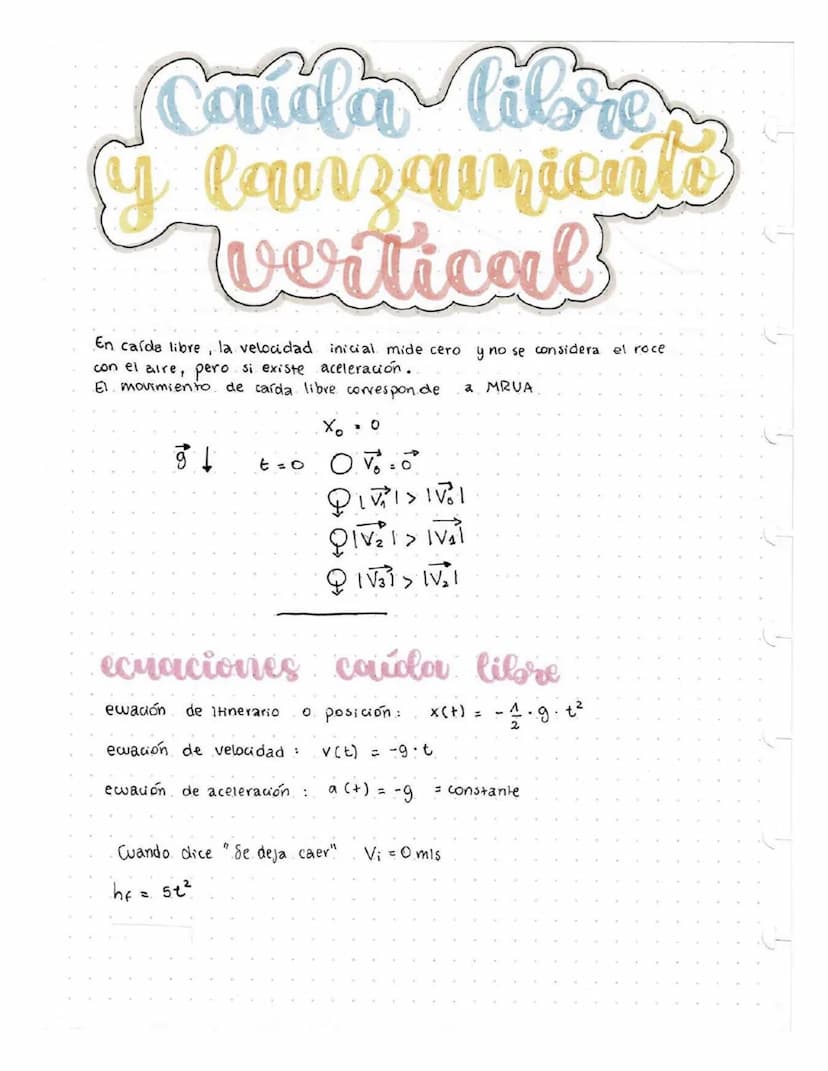 caída libre
y lanzamiento
vertical
En caída libre, la velocidad inicial mide cero y no se considera el roce
con el aire, pero si existe aceleración.
El movimiento de caída libre corresponde a MRUA
x₀ = 0
g⃗ ↓ t = 0 V⃗₀ = 0⃗
|V⃗₁| > |V⃗₀|
|V⃗₂| > |V⃗₁|
|V⃗₃| > |V⃗₂|
ecuaciones caída libre
ecuación de itinerario o posición: x(t) = - 1/2 · g · t²
ecuación de velocidad: v(t) = -g · t
ecuación de aceleración: a(t) = -g = constante
Cuando dice "Se deja caer" Vi = 0 m/s
hf = 5t²